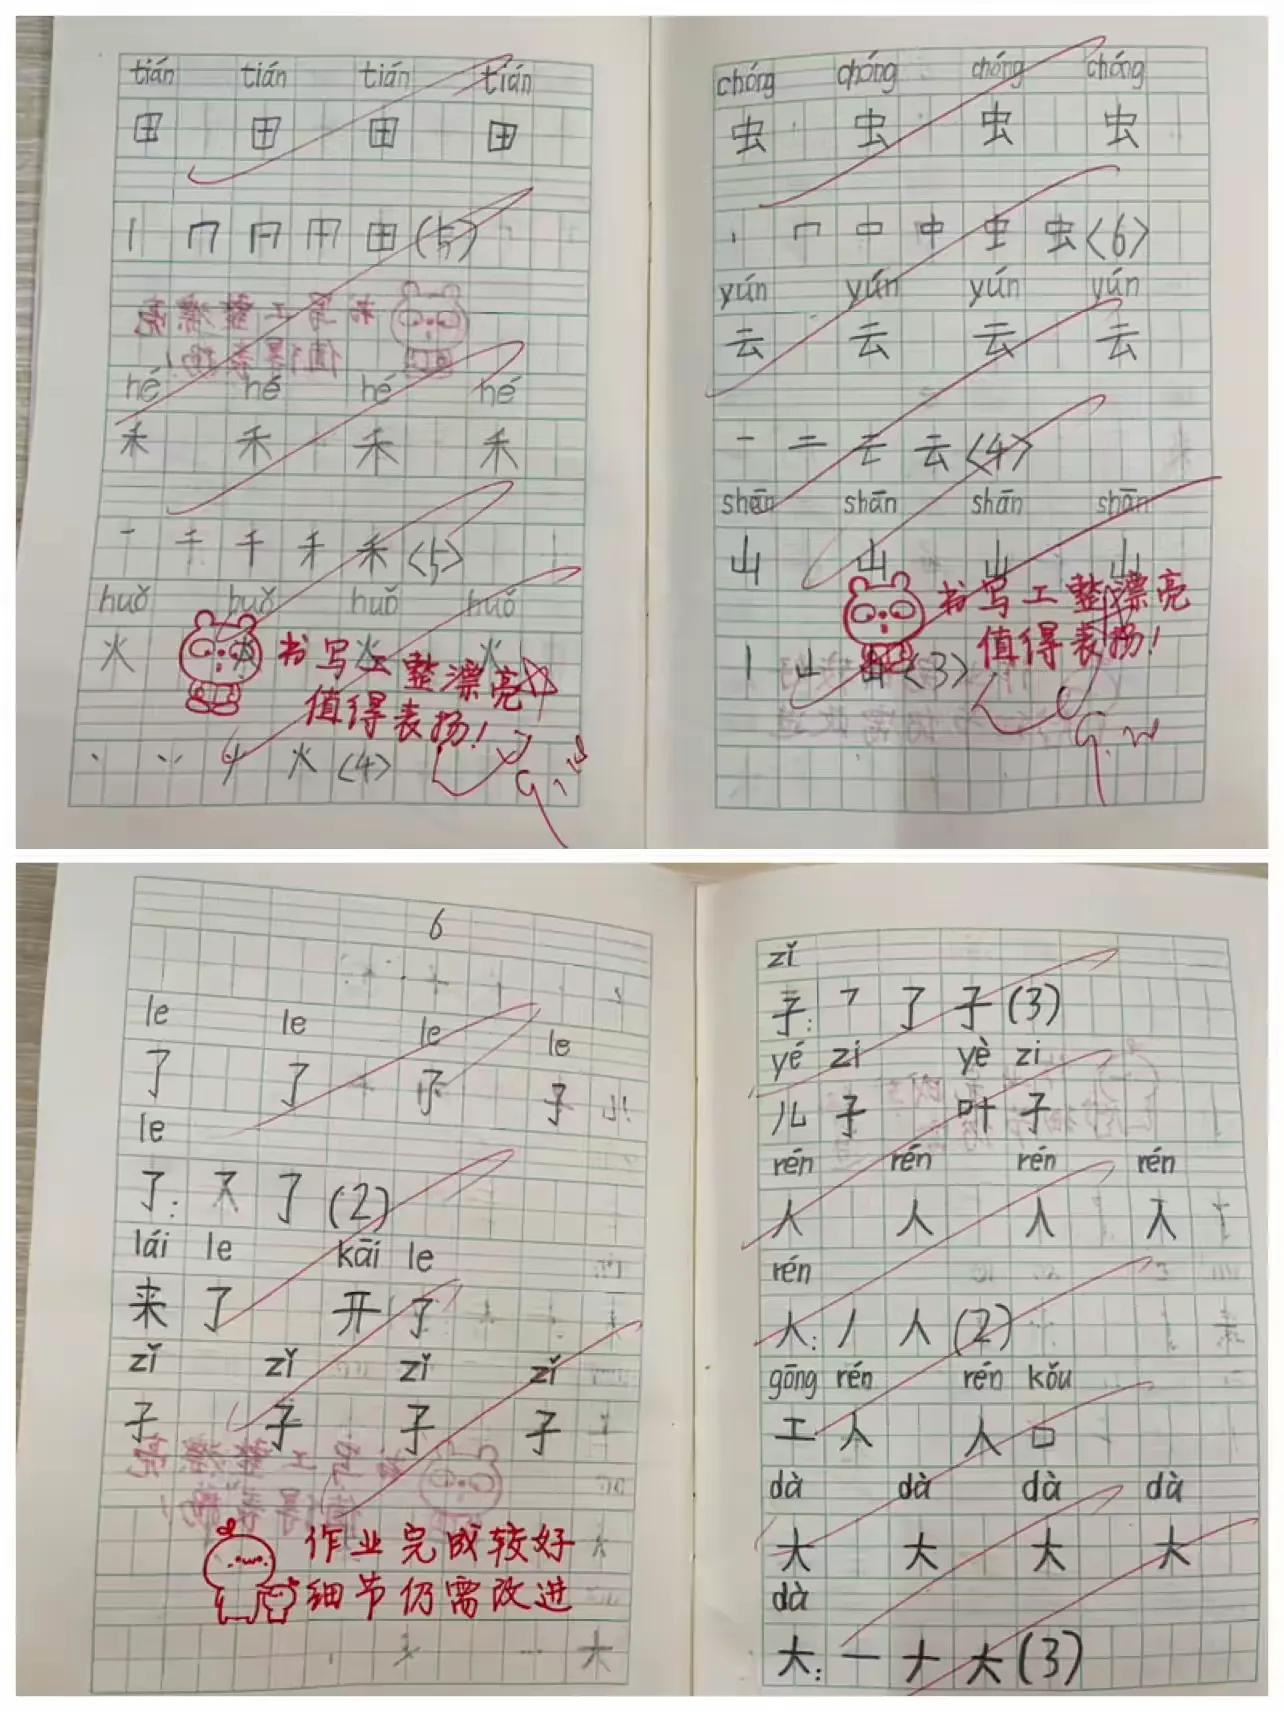 tián tián tián tián
田 田 田 田
田 (5)
hé hé hé hé
禾 禾 禾 禾
一 二 千 禾 禾 <5>
huǒ huǒ huǒ huǒ
火 火 火 火
书写工整漂亮
值得表扬!
火 <4>
G.W
chóng chóng chóng chóng
虫 虫 虫 虫
口 中 虫 <6>
yún yún yún yún
云 云 云 云
一 二 云 云 <4>
shān shān shān shān
山 山 山 山
书写工整漂亮
值得表扬!
山 山 <3>
G.W
6
le le le le
了 了 了 子
le
了: 了 (2)
lái le kāi le
来 了 开 了
zǐ zǐ zǐ zǐ
子 子 子 子
作业完成较好
细节仍需改进
zǐ
子: 了 子 (3)
yé zi yè zi
儿 子 叶 子
rén rén rén rén
人 人 人 人
rén
人: 丿 人 (2)
gōng rén rén kǒu
工 人 人 口
dà dà dà dà
大 大 大 大
dà
大: 一 ナ 大 (3)